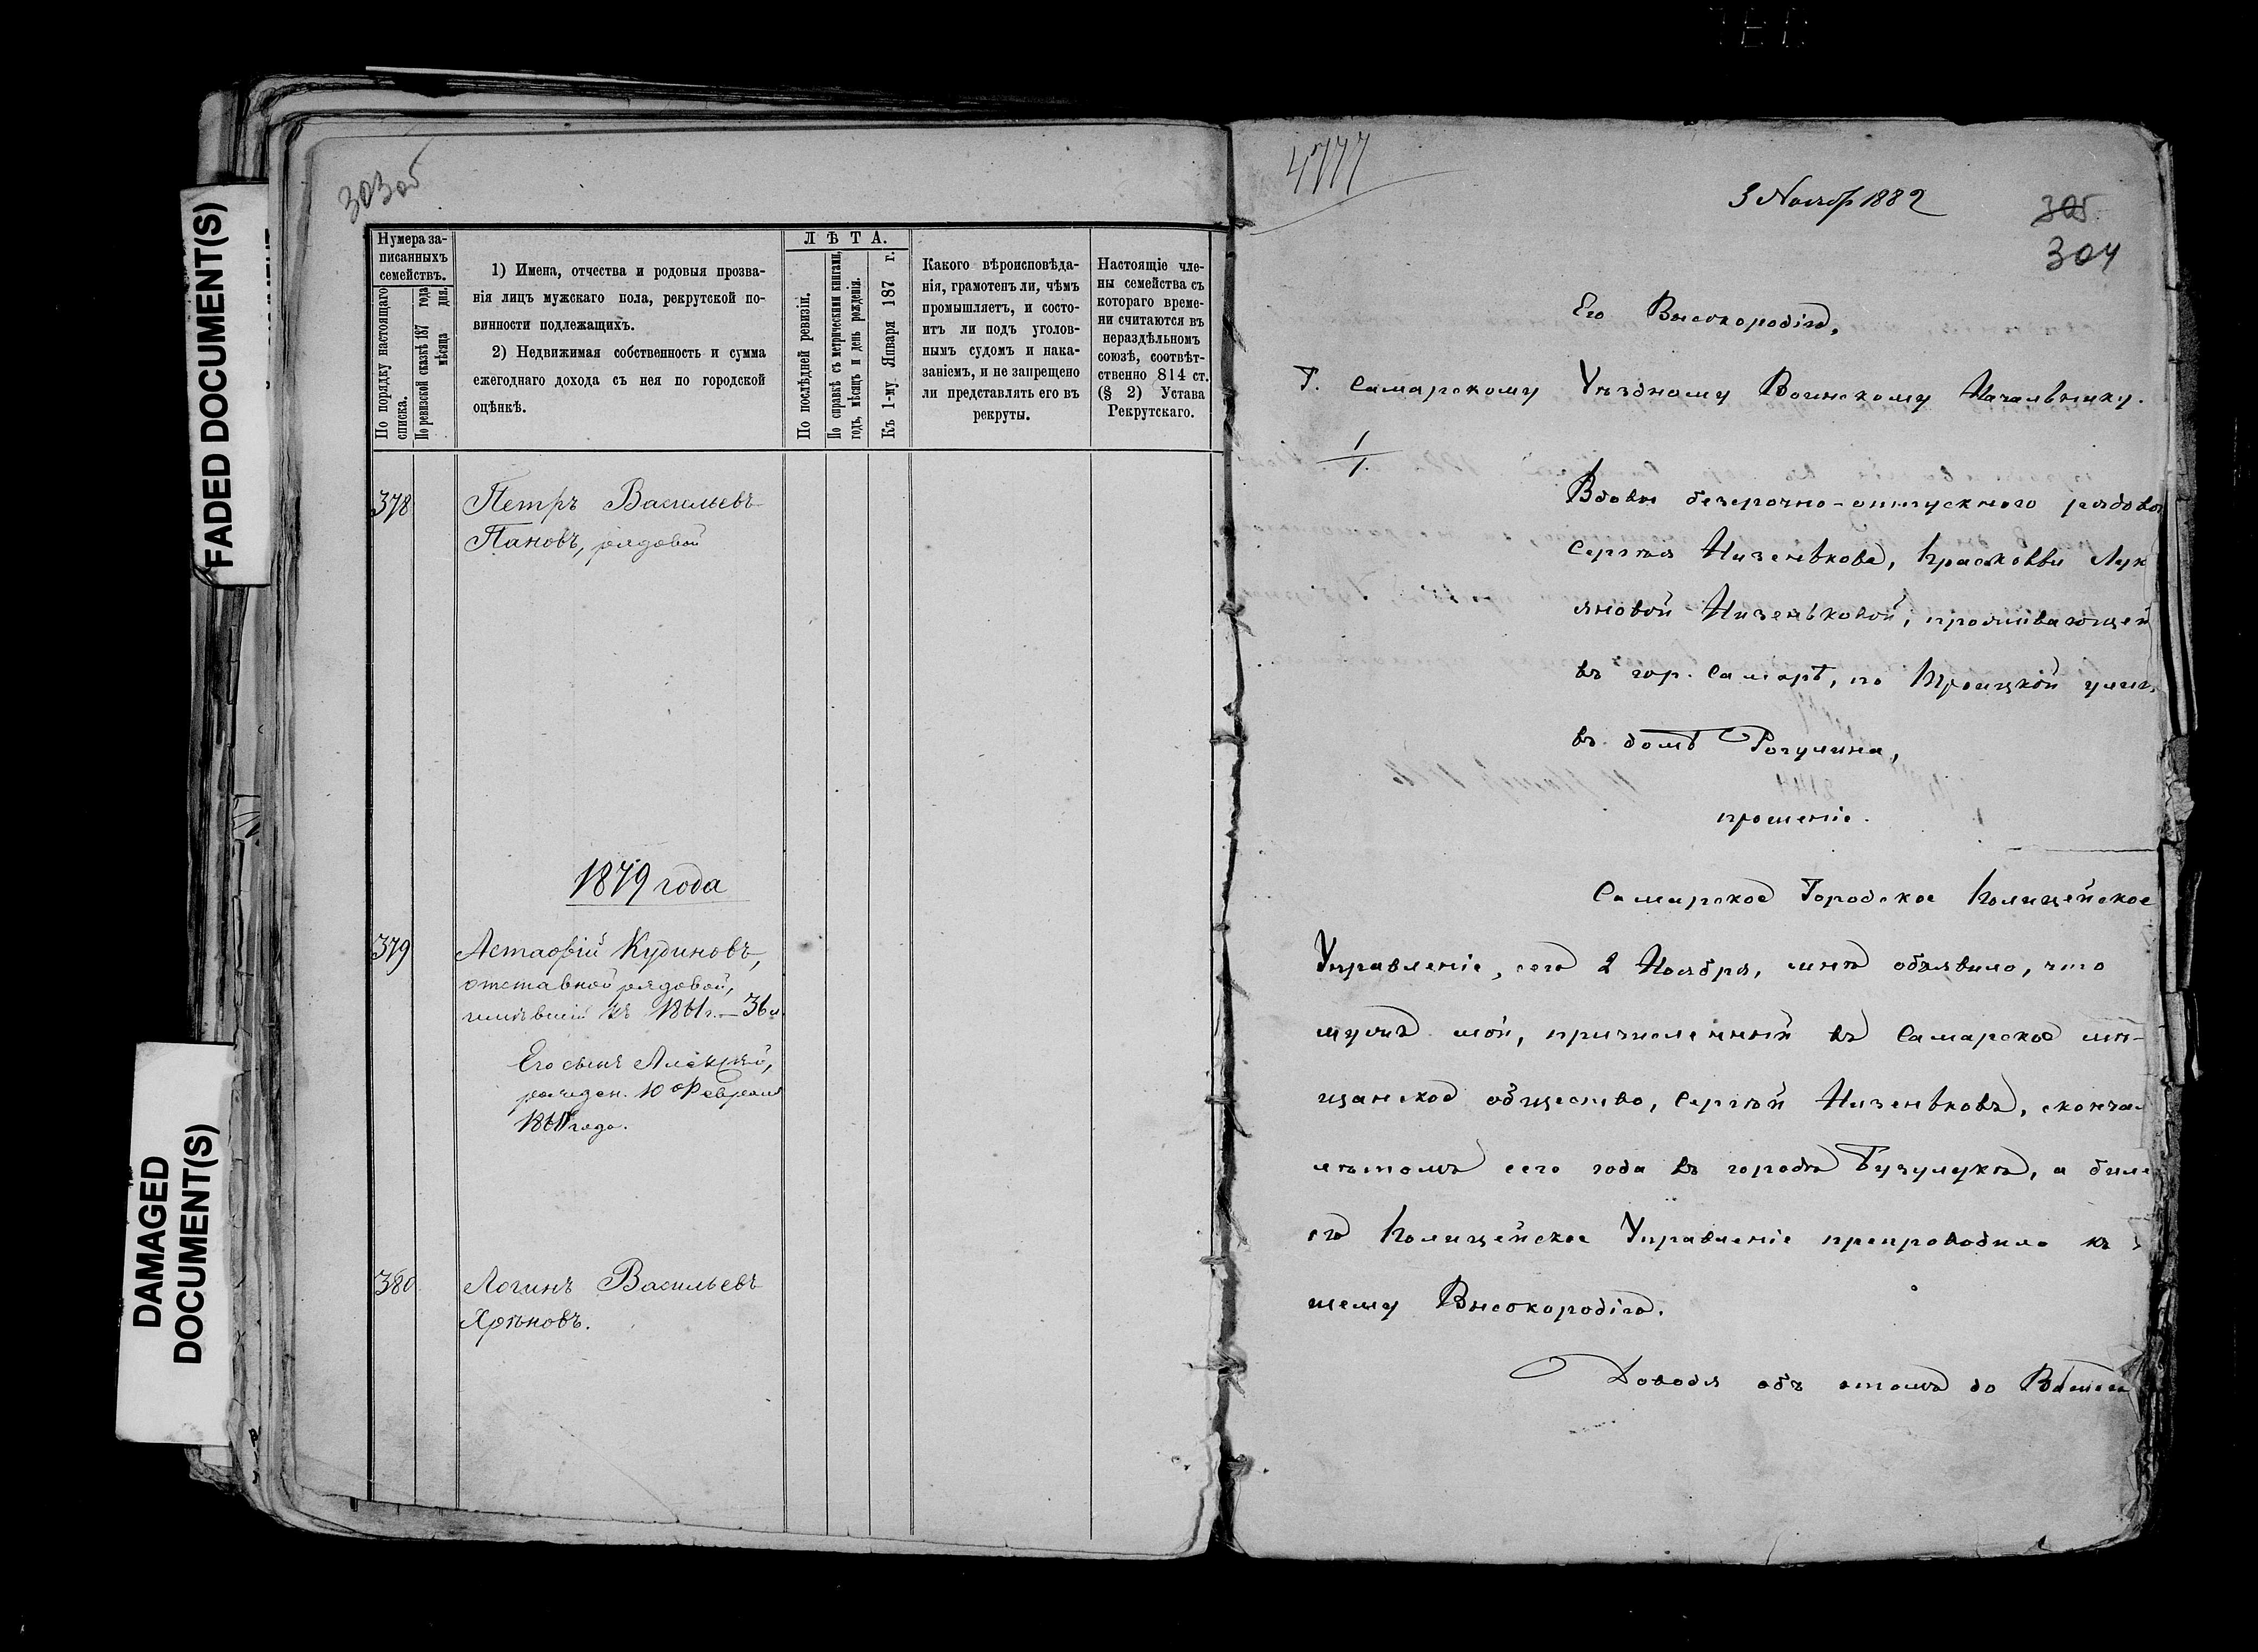 FADED DOCUMENT(S)
DAMAGED
DOCUMENT(S)
303об
Нумера за-
писанныхъ
семействъ.
По порядку настоящаго
списка.
По ревизской сказкѣ 187 года
мѣсяца дня.
1) Имена, отчества и родовыя прозва-
нія лицъ мужскаго пола, рекрутской по-
винности подлежащихъ.
2) Недвижимая собственность и сумма
ежегоднаго дохода съ нея по городской
оцѣнкѣ.
ЛѢТА.
По послѣдней ревизіи.
По справкѣ съ метрическими книгами,
годъ, мѣсяцъ и день рожденія.
Къ 1-му Января 187 г.
Какого вѣроисповѣда-
нія, грамотенъ ли, чѣмъ
промышляетъ, и состо-
итъ ли подъ уголов-
нымъ судомъ и нака-
заніемъ, и не запрещено
ли представлять его въ
рекруты.
Настоящіе чле-
ны семейства съ
котораго време-
ни считаются въ
нераздѣльномъ
союзѣ, соотвѣт-
ственно 814 ст.
(§ 2) Устава
Рекрутскаго.
378 Петръ Васильевъ
Пановъ, рядовой
1879 года
379 Астафій Кудиновъ,
отставной рядовой,
имѣвшій въ 1861 г. — 36 л.
Его сынъ Алексѣй,
рожден. 10 Февраля
года.
380 Логинъ Васильевъ
Хрѣновъ.
4777
3 Ноября 1882
305
304
Его Высокородію,
Г. Самарскому Уѣздному Воинскому Начальнику.
Вдовы безсрочно-отпускного рядова
Сергѣя Низенькова, Прасковьи Лук
яновой Низеньковой, проживающей
въ гор. Самарѣ, по Троицкой улиц
въ домѣ Рогулина,
прошеніе.
Самарское Городское Полицейское
Управленіе, сего 2 Ноября, мнѣ объявило, что
мужъ мой, причисленный въ Самарское мѣ-
щанское общество, Сергѣй Низеньковъ, сконча
лѣтомъ сего года въ городѣ Бузулукѣ, а биле
его Полицейское Управленіе препроводило къ
шему Высокородію.
Доводя объ этомъ до Вашего